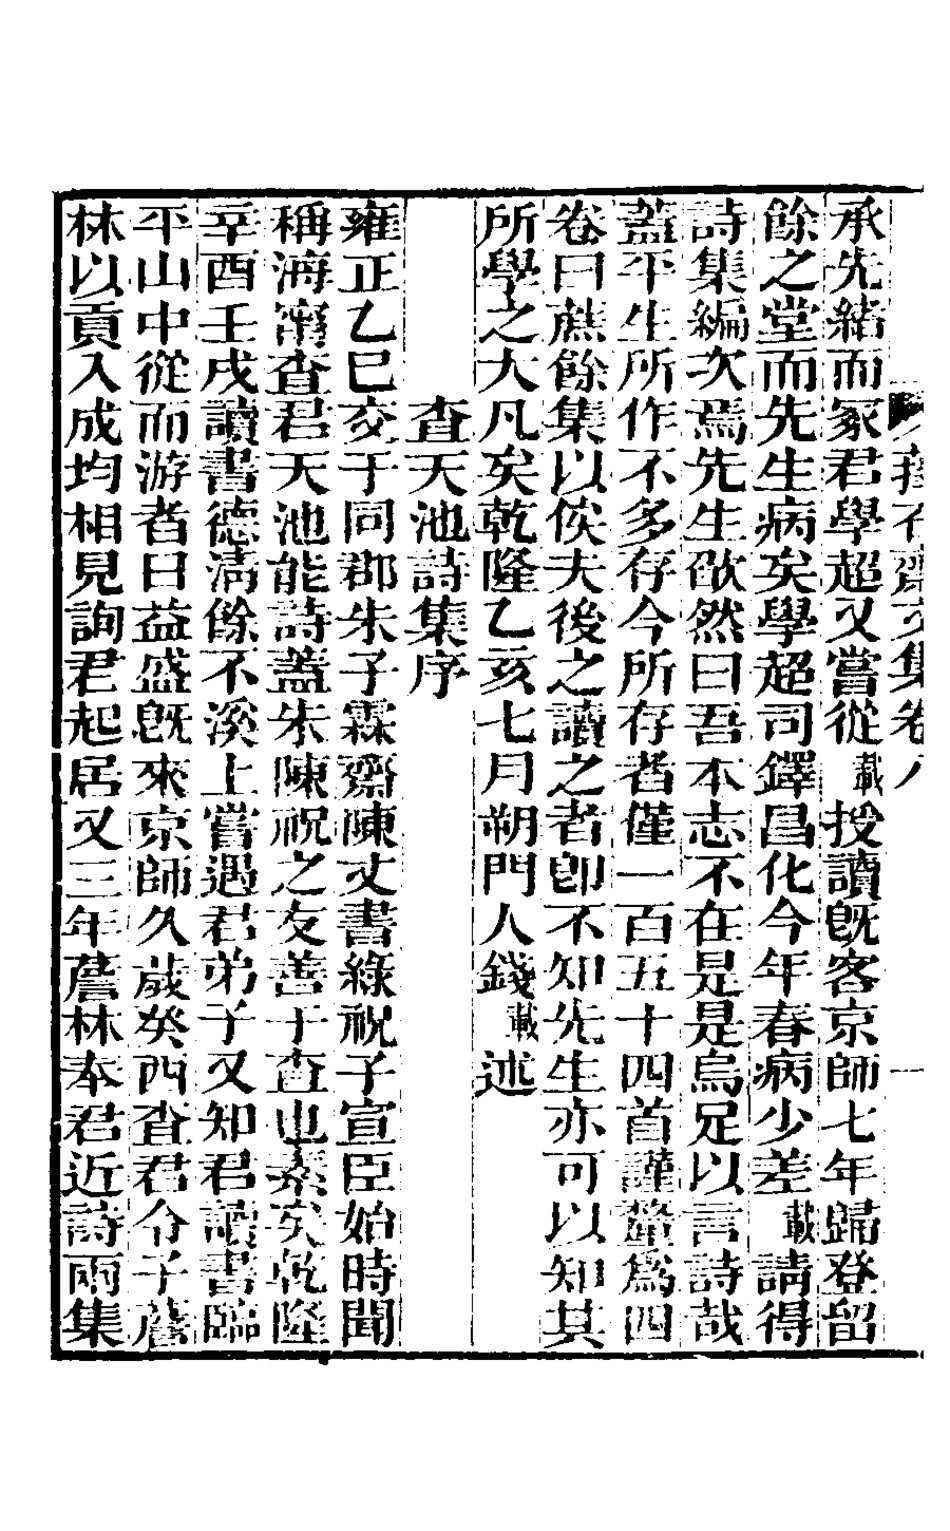 蘀石齋文集卷八 一
承先緒而冢君學超又嘗從載授讀旣客京師七年歸登留
餘之堂而先生病矣學超司鐸昌化今年春病少差載請得
詩集編次焉先生欿然曰吾本志不在是是烏足以言詩哉
蓋平生所作不多存今所存者僅一百五十四首謹釐爲四
卷曰蔗餘集以俟夫後之讀之者卽不知先生亦可以知其
所學之大凡矣乾隆乙亥七月朔門人錢載述
查天池詩集序
雍正乙巳交于同郡朱子霖齋陳丈書綠祝子宣臣始時聞
稱海甯查君天池能詩蓋朱陳祝之友善于查也素矣乾隆
辛酉壬戌讀書德淸餘不溪上嘗遇君弟子又知君讀書臨
平山中從而游者日益盛旣來京師久歲癸酉查君令子薝
林以貢入成均相見詢君起居又三年薝林奉君近詩兩集